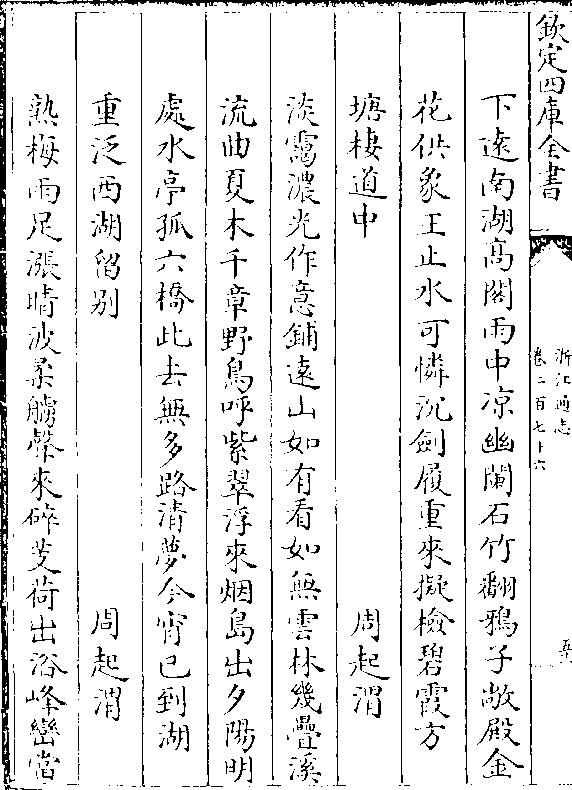 欽定四庫全書
浙江通志
卷二百七十六
下遠南湖高閣雨中凉幽闌石竹翻鴉子敞殿金
花供象王止水可憐沉劍履重來擬檢碧霞方
塘棲道中 周起渭
淡靄濃光作意鋪遠山如有看如無雲林幾疊溪
流曲夏木千章野鳥呼紫翠浮來烟島出夕陽明
處水亭孤六橋此去無多路清夢今宵已到湖
重泛西湖留别 周起渭
熟梅雨足漲晴波柔艣聲來碎芰荷出浴峰巒當